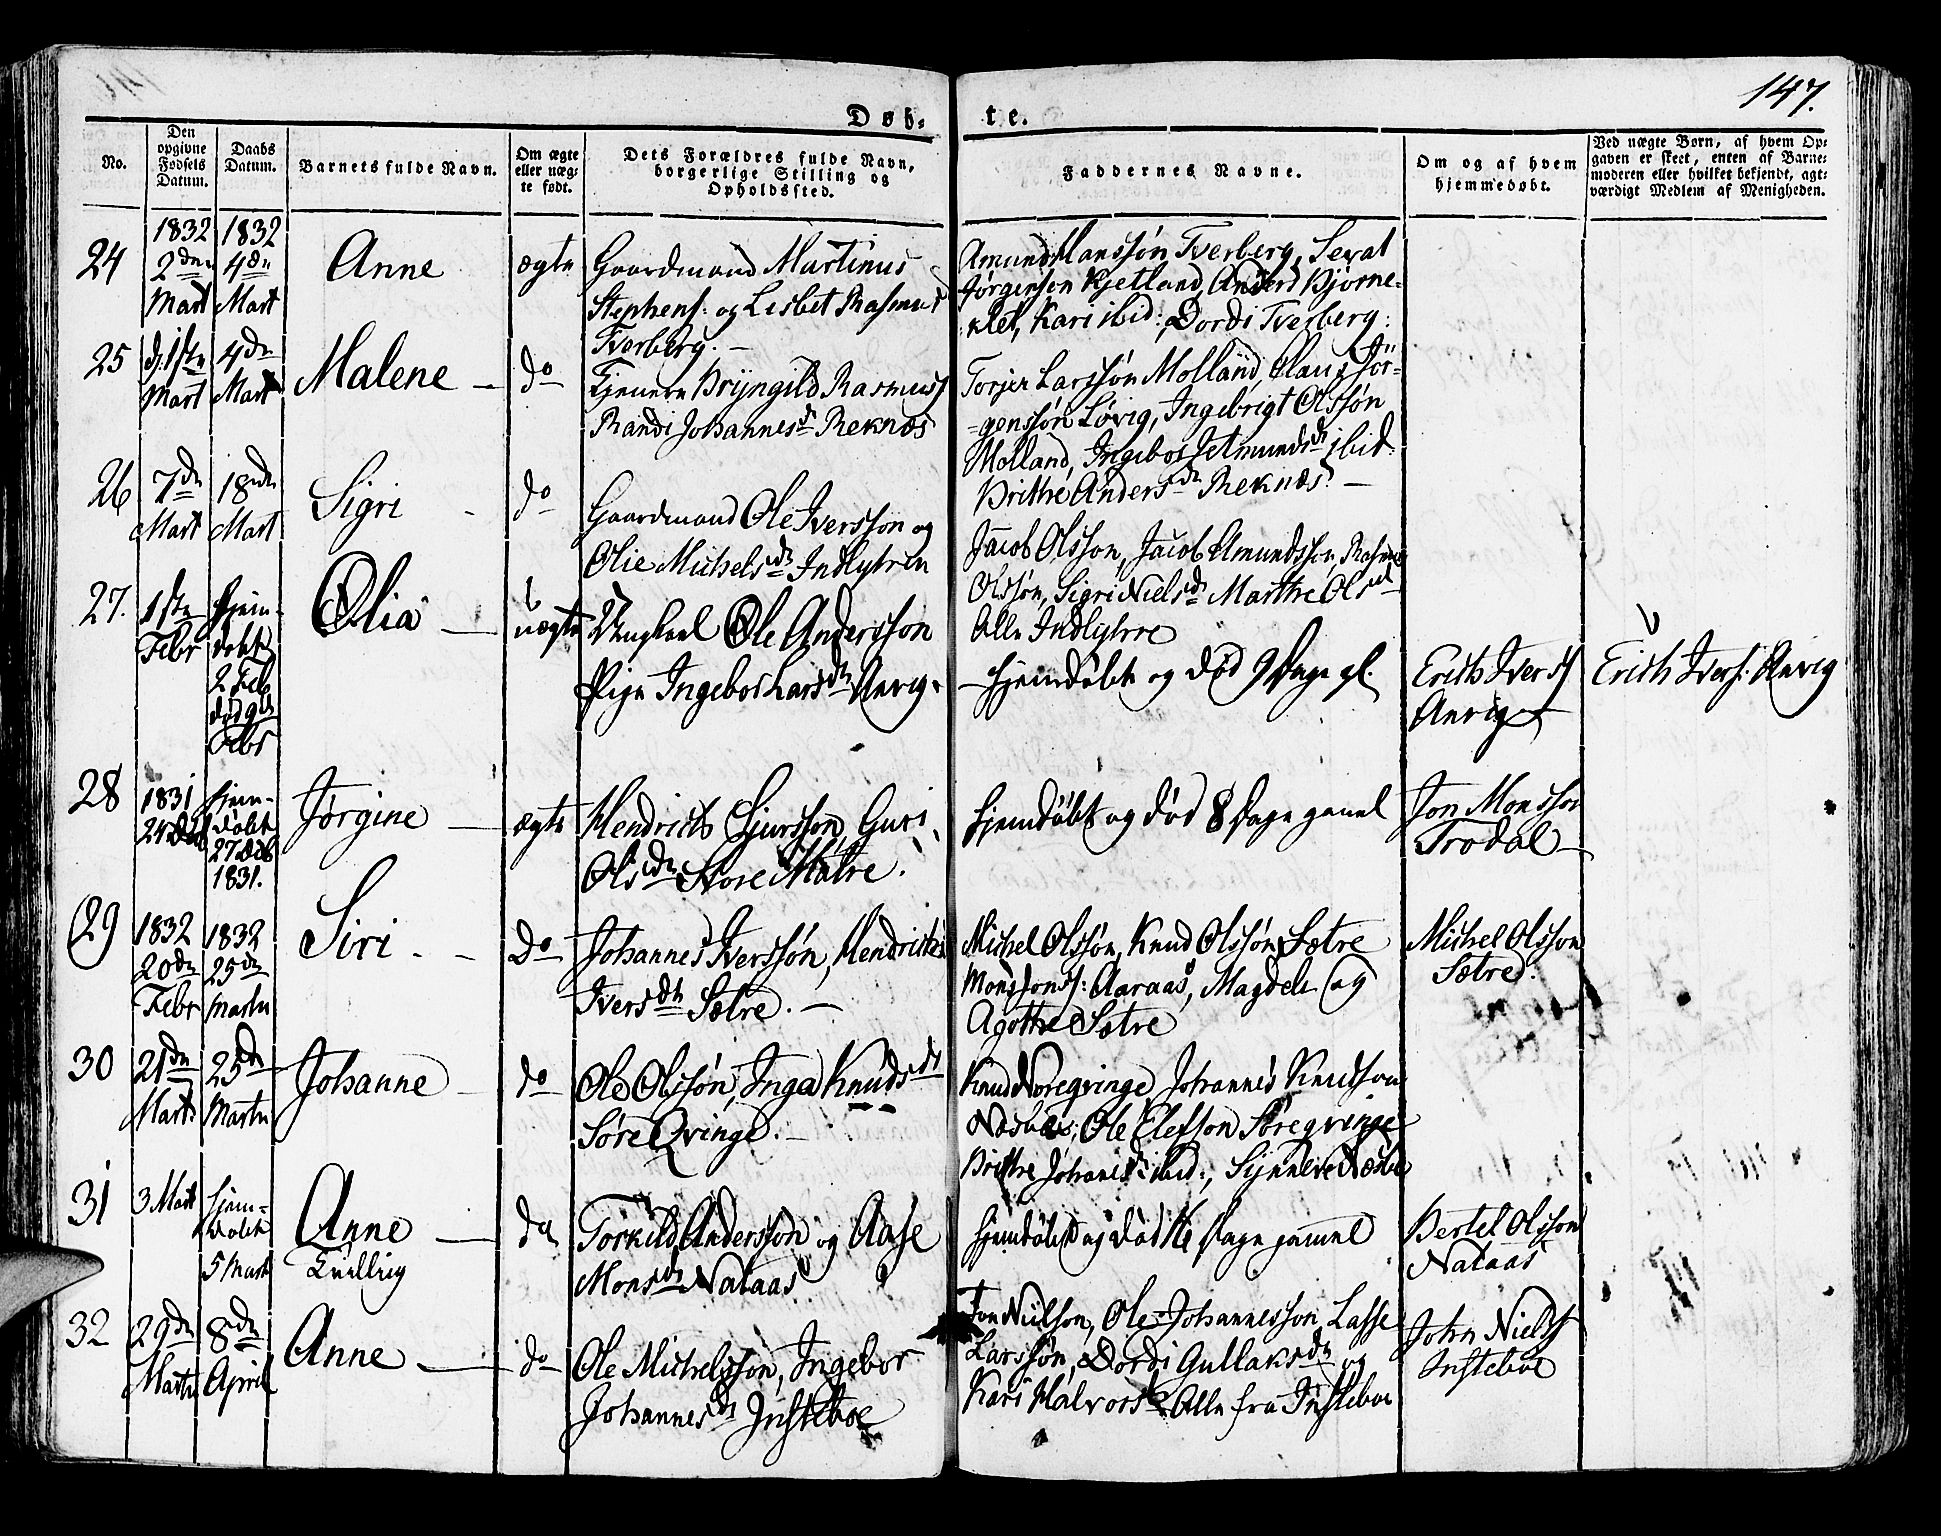 147.
Døb-te.
No.
Den opgivne Fødsels Datum.
Daabs Datum.
Barnets fulde Navn.
Om ægte eller uægte født.
Dets Forældres fulde Navn, borgerlige Stilling og Opholdssted.
Faddernes Navne.
Om og af hvem hjemmedøbt.
Ved uægte Børn, af hvem Opgaven er skeet, enten af Barnemoderen eller hvilket bekjendt, agtværdigt Medlem af Menigheden.
24
1832
2den
Mart
1832
4de
Mart
Anne
ægte
Gaardmand Martinus
Stephens: og Lisbet Rasmusd
Tverberg. —
Amund Hanssøn Tverberg, Sevat
Jørgensen Kjetland, Anders Bjørne-
klet, Kari ibid: Dordi Tverberg:
25
d. 1ste
Mart
4de
Mart
Malene —
do
Tjenere Bryngild Rasmuss
Randi Johannesd Reknæs
Torjer Larssøn Molland, Claus Jör-
=genssøn Løvig, Ingebrigt Olssøn
Molland, Ingebor Jetmundsdt ibid
Brithe Andersdt Reknæs —
26
7de
Mart
18de
Mart
Sigri -
do
Gaardmand Ole Iverssøn og
Olie Michelsdt Indlytren
Jacob Olsson, Jacob Amundsson, Rasmus
Olssøn, Sigri Nielsdt Marthe Olsd
Alle Indlytre
27.
1ste
Febr
hjem-
døbt
2 Feb
død 9de
Febr
Olia —
uægte
Ungkarl Ole Andersson
Pige Ingebor Larsdt Anvig.
— hjemdøbt og død 9 Dage gl.
Erich Iverss
Anvig —
Erich Ivers: Anvig
28
1831
24 Deb
hjem-
døbt
27 Deb
1831.
Jørgine —
ægte
Hendrich Sjursson, Guri
Olsdt Store Matre.
hjemdøbt og død 8 Dage gamel
Jon Monsson
Trodal —
29
1832
20de
Febr
1832
25de
Marts
Siri - -
do
Johannes Iverssøn, Hendricke
Iversdt Sætre. —
Michel Olssøn, Knud Olssøn Sætre
Mons Aaraas, Magdele og
Agothe Sætre
Michel Olsson
Sætre.
30
21de
Marts
25de
Marts
Johanne —
do
Ole Olssøn, Inga Knudsdt
Søre Qvinge. —
Knud Noreqvinge, Johannes Knudson
Ole Elefson Søreqvinge
Brithe Johanesdt ibid:, Synneve
31
3 Mart
hjem-
døbt
5 Mart
Anne —
Tvilling
do
Torkild Andersson og Aase
Monsdt Nataas
hjemdøbt og død Dage gammel
Bertel Olsson
Nataas
32
29de
Marts
8de
April
Anne —
do
Ole Michelssøn, Ingebor
Johannesdt Insteboe
Jon Nielson, Ole Johannesson, Lasse
Larssøn, Dordi Gullaksdt og
Kari Halvorsd Alle fra Insteboe
John Nielss
Insteboe